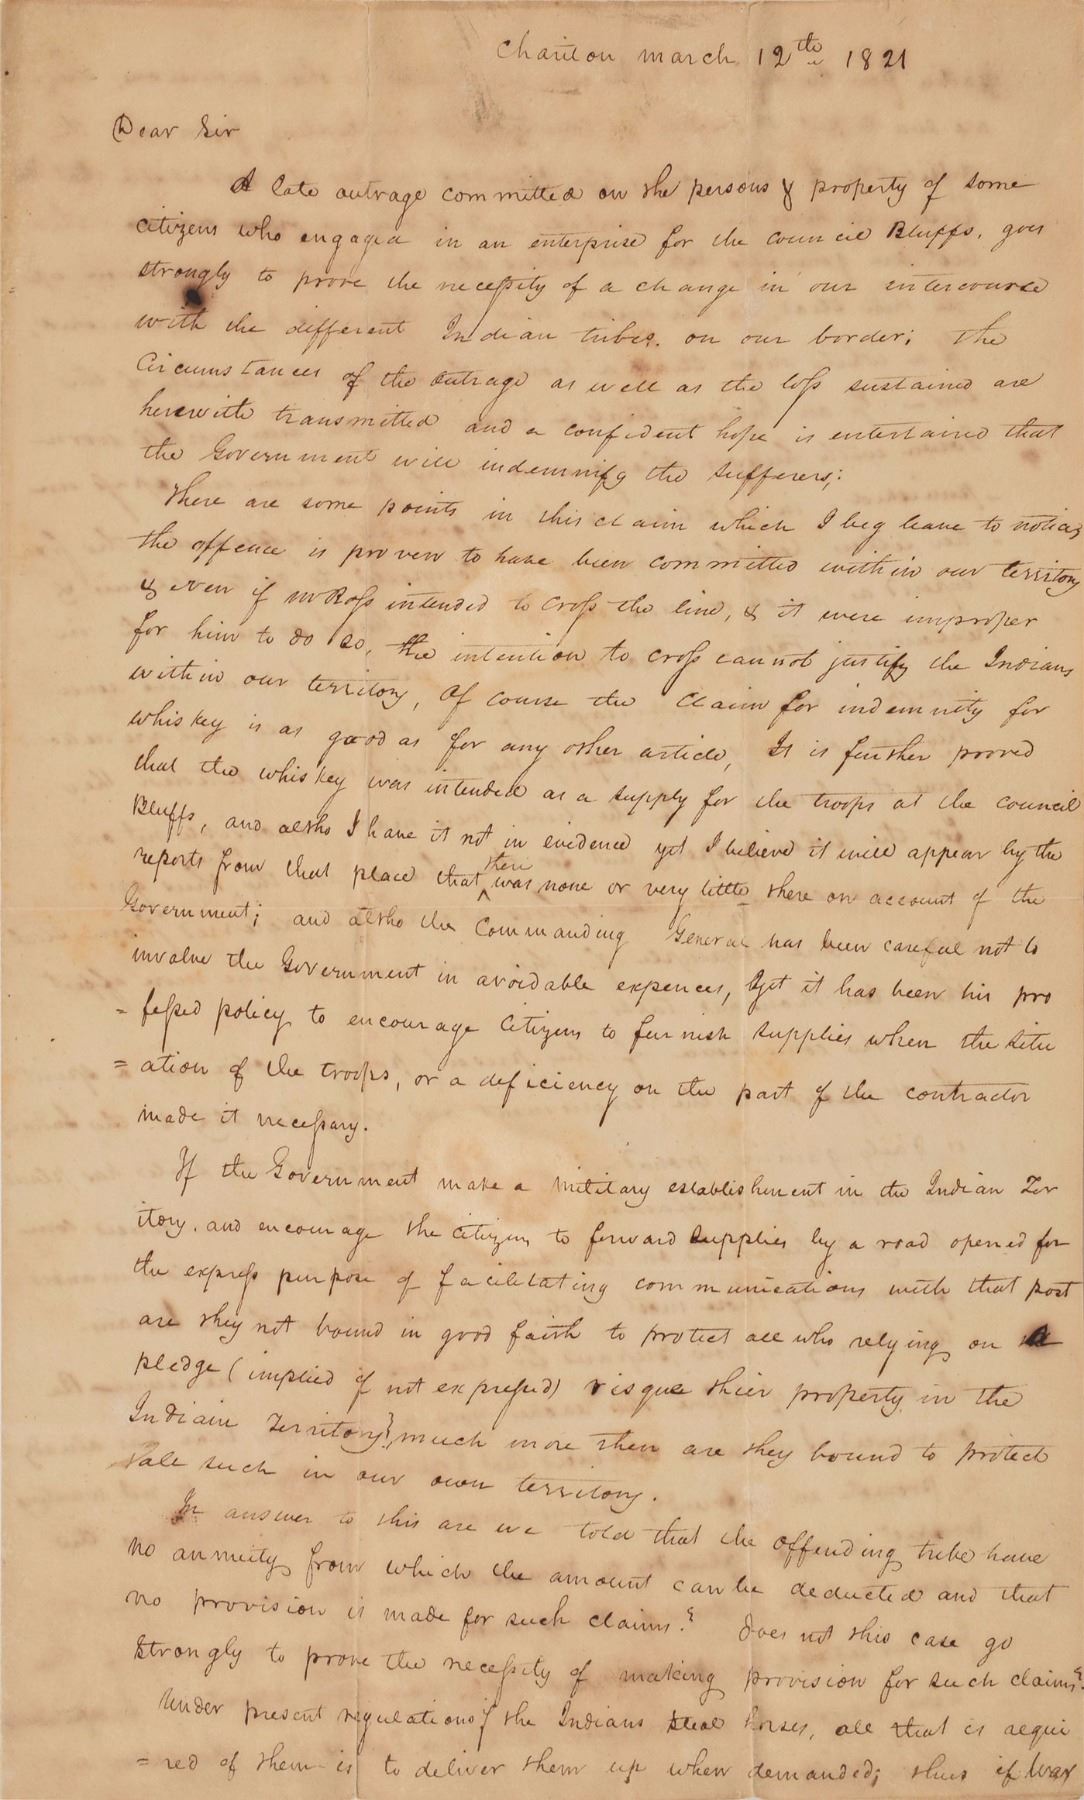 Chariton march 12th 1821
Dear Sir
A late outrage committed on the persons & property of some
citizens who engaged in an enterprise for the council Bluffs, goes
strongly to prove the necessity of a change in our intercourse
with the different Indian tribes. on our border; The
Circumstances of the outrage as well as the loss sustained are
herewith transmitted and a confident hope is entertained that
the Government will indemnify the sufferers;
There are some points in this claim which I beg leave to notice,
the offence is proven to have been committed within our territory
& even if mr Ross intended to cross the line, & it were improper
for him to do so, the intention to cross cannot justify the Indians
within our territory, Of course the claim for indemnity for
whiskey is as good as for any other article, It is further proved
that the whiskey was intended as a supply for the troops at the council
Bluffs, and altho I have it not in evidence yet I believe it will appear by the
reports from that place that there was none or very little there on account of the
Government; and altho the Commanding General has been careful not to
involve the Government in avoidable expences, yet it has been his pro
= fessed policy to encourage Citizens to furnish supplies when the situ
= ation of the troops, or a deficiency on the part of the contractor
made it necessary.
If the Government make a military establishment in the Indian Ter
itory, and encourage the citizens to forward supplies by a road opened for
the express purpose of facilitating communications with that post
are they not bound in good faith to protect all who relying on a
pledge (implied if not expressed) risque thier property in the
Indian Territory? much more then are they bound to protect
all such in our own territory.
In answer to this are we told that the offending tribe have
no annuity from which the amount can be deducted and that
no provision is made for such claims? does not this case go
strongly to prove the necessity of making provision for such claims?
Under present regulations if the Indians steal horses, all that is requi
= red of them is to deliver them up when demanded; thus if war